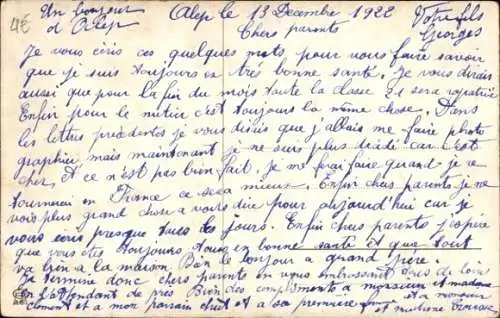 4€
Un bonjour d'Alep
Alep le 13 Decembre 1922
Votre fils Georges
Chers parents
Je vous écris ces quelques mots pour vous faire savoir
que je suis toujours en très bonne santé. Je vous dirais
aussi que pour la fin du mois toute la classe 21 sera rapatriée
Enfin pour le métier c'est toujours la même chose. Dans
les lettres précedentes je vous disais que j'allais me faire photo
graphier, mais maintenant je ne suis plus décidé car c'est
cher, et ce n'est pas bien fait. Je me ferai faire quand je re
tournerai en France ce sera mieux. Enfin chers parents je ne
vois plus grand chose a vous dire pour aujourd'hui car je
vous écris presque tous les jours. Enfin chers parents j'espère
que vous êtes toujours tous en bonne santé et que tout
va bien a la maison. Bien le bonjour a grand père.
Je termine donc chers parents en vous embrassant tous de loin
en l'attendant de près Bien des compliments a monsieur et madame
Clement et a mon parrain et a sa première et a monsieur
et madame